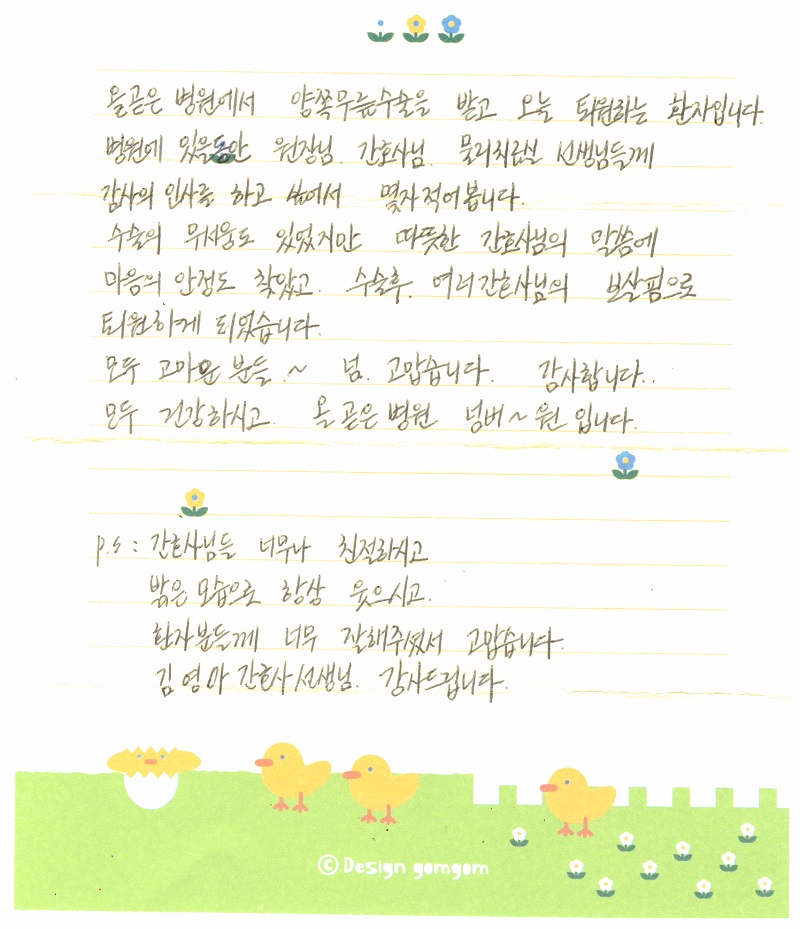 올곧은 병원에서 양쪽무릎수술을 받고 오늘 퇴원하는 환자입니다.
병원에 있을동안 원장님. 간호사님. 물리치료실 선생님들께
감사의 인사를 하고 싶어서 몇자적어봅니다.
수술의 무서움도 있었지만 따뜻한 간호사님의 말씀에
마음의 안정도 찾았고. 수술후. 여러간호사님의 보살핌으로
퇴원하게 되었습니다.
모두 고마운 분들.~ 넘. 고맙습니다. 감사합니다..
모두 건강하시고. 올곧은병원 넘버~원 입니다.
p.s : 간호사님들 너무나 친절하시고
밝은모습으로 항상 웃으시고.
환자분들께 너무 잘해주셔서 고맙습니다.
김영아 간호사선생님. 감사드립니다.
© Design gomgom